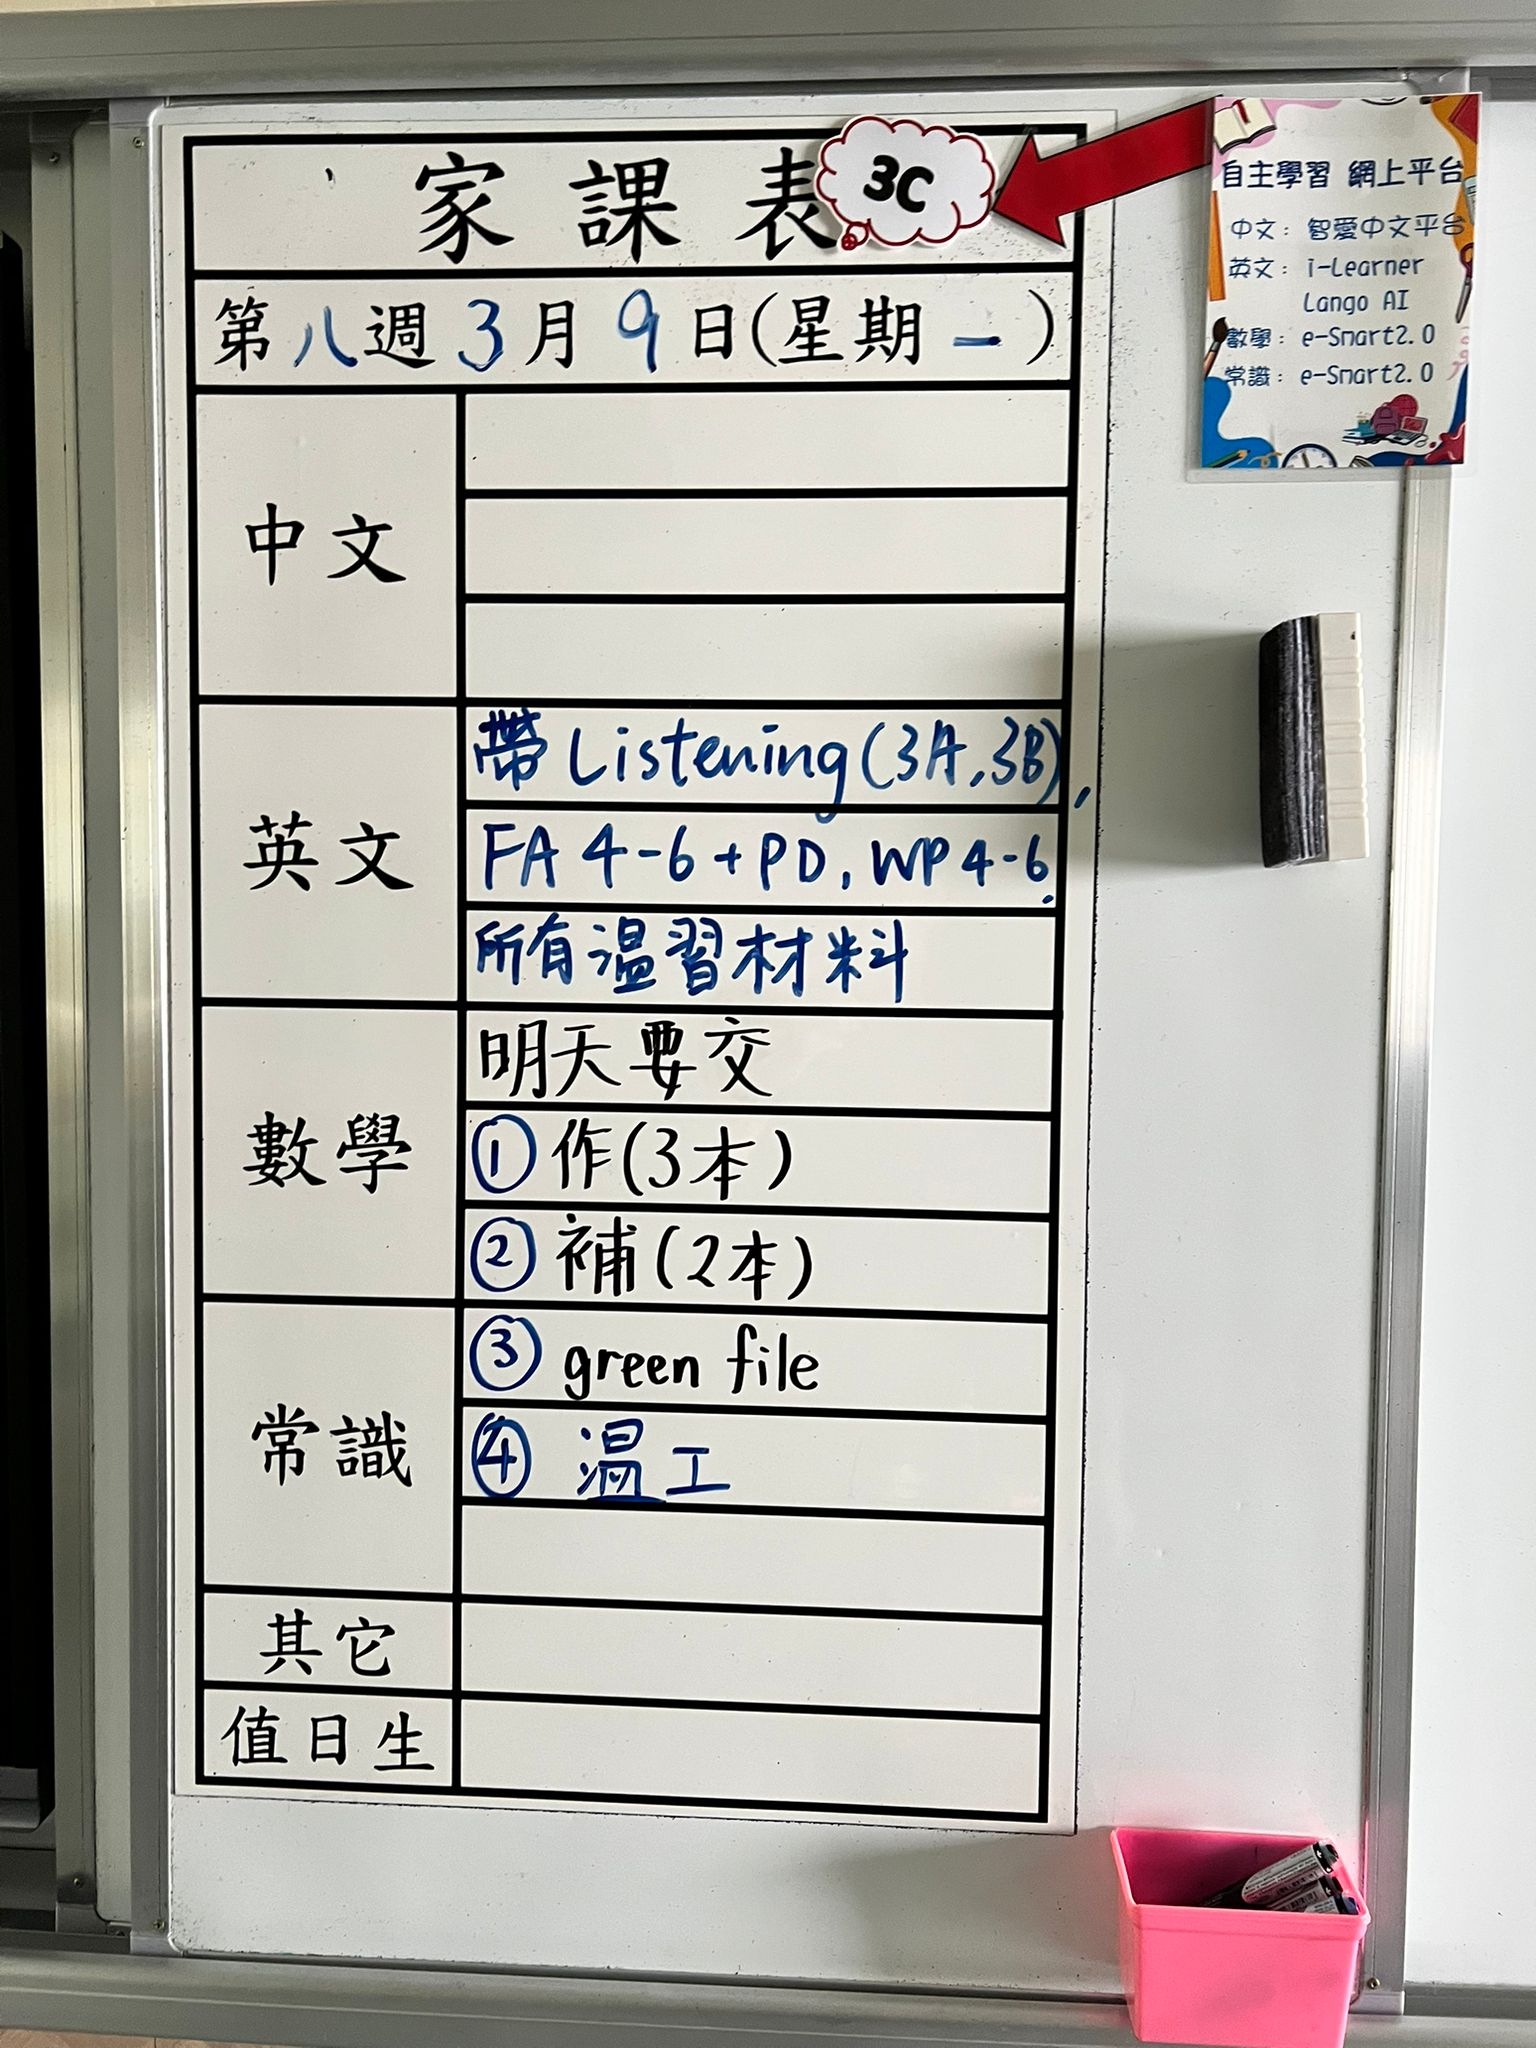 家課表
3C
第八週3月9日(星期一)
中文
英文
帶 Listening (3A, 3B),
FA 4-6 + PD, WP 4-6.
所有溫習材料
數學
明天要交
① 作(3本)
② 補(2本)
常識
③ green file
④ 溫工
其它
值日生
自主學習 網上平台
中文: 智愛中文平台
英文: i-Learner
Lango AI
數學: e-Smart2.0
常識: e-Smart2.0